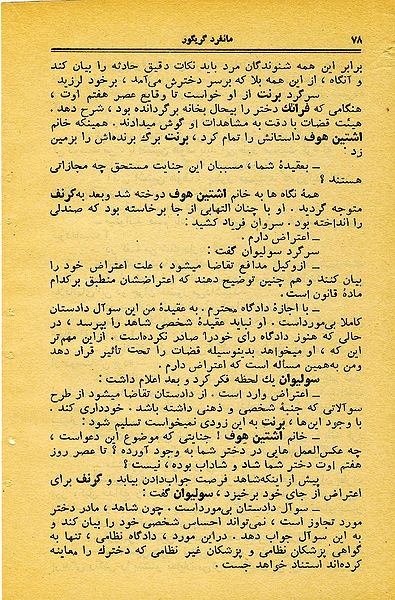 ۷۸ مانفرد گریگور
برابر این همه شنوندگان مرد باید نکات دقیق حادثه را بیان کند
و آنگاه ، از این همه بلا که بر سر دخترش می‌آمد ، برخود لرزید
سرگرد برنت از او خواست تا وقایع عصر هفتم اوت ،
هنگامی که فرانک دختر را بیحال بخانه برگردانده بود ، شرح دهد .
هیئت قضات با دقت به مشاهدات او گوش میدادند . همینکه خانم
اشتین هوف داستانش را تمام کرد ، برنت برگ برنده‌اش را بزمین
زد :
ــ بعقیدهٔ شما ، مسببان این جنایت مستحق چه مجازاتی
هستند ؟
همهٔ نگاه ها به خانم اشتین هوف دوخته شد وبعد به‌گرنف
متوجه گردید . او با چنان التهابی از جا برخاسته بود که صندلی
را انداخته بود . سروان فریاد کشید :
ــ اعتراض دارم .
سرگرد سولیوان گفت :
ــ ازوکیل مدافع تقاضا میشود ، علت اعتراض خود را
بیان کنند و هم چنین توضیح دهند که اعتراضشان منطبق برکدام
مادهٔ قانون است .
ــ با اجازهٔ دادگاه محترم . به عقیدهٔ من این سوآل دادستان
کاملا بی‌مورداست . او نباید عقیدهٔ شخصی شاهد را بپرسد ، در
حالی که هنوز دادگاه رای خودرا صادر نکرده‌است . ازاین مهم‌تر
این که ، او میخواهد بدینوسیله قضات را تحت تأثیر قرار دهد
ومن به‌همین مسأله است که اعتراض دارم .
سولیوان یك لحظه فکر کرد و بعد اعلام داشت :
ــ اعتراض وارد است . از دادستان تقاضا میشود از طرح
سوآلاتی که جنبهٔ شخصی و ذهنی داشته باشد . خودداری کند .
با وجود این‌ها ، برنت به این زودی نمیخواست تسلیم شود :
ــ خانم اشتین هوف ! جنایتی که موضوع این دعواست ،
چه عکس‌العمل هایی در دختر شما به وجود آورده ؟ تا عصر روز
هفتم اوت دختر شما شاد و شاداب بوده ، نیست ؟
پیش از اینکه‌شاهد فرصت جواب‌دادن بیابد و گرنف برای
اعتراض از جای خود برخیزد ، سولیوان گفت :
ــ سوآل دادستان بی‌مورداست . چون شاهد ، مادر دختر
مورد تجاوز است ، نمی‌تواند احساس شخصی خود را بیان کند و
به این سوآل جواب دهد . دراین مورد ، دادگاه نظامی ، تنها به
گواهی پزشکان نظامی و پزشکان غیر نظامی که دخترك را معاینه
کرده‌اند استناد خواهد جست .